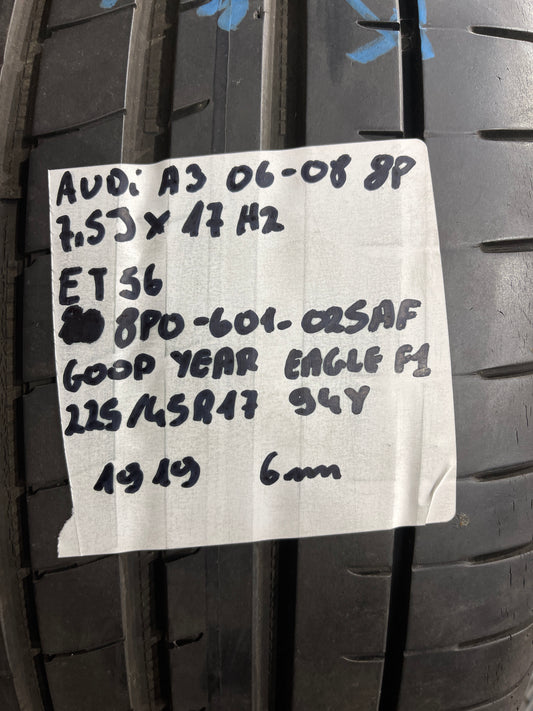 AUDi A3 06-08 8P
7,5J x 17 H2
ET 56
8P0-601-025AF
GOOD YEAR EAGLE F1
225/45R17 94Y
1919 6mm